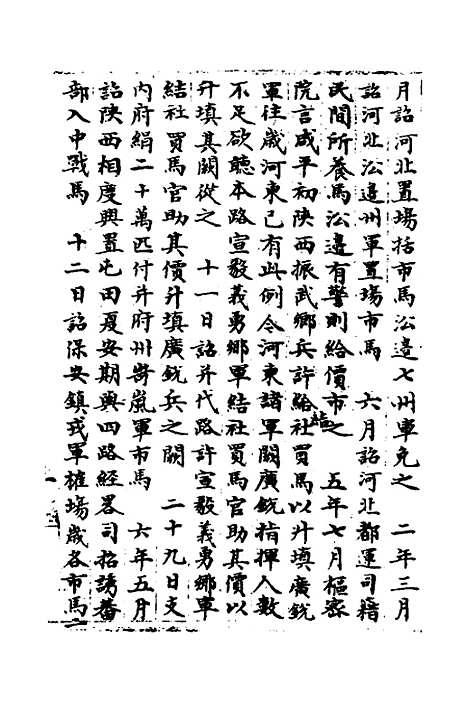 月詔河北置場括市馬沿邊七州軍免之　二年三月
詔河北沿邊州軍置場市馬　六月詔河北都運司籍
民間所養馬沿邊有警則給價市之　五年七月樞密
院言咸平初陝西振武鄉兵許結社買馬以升填廣銳
軍往歲河東已有此例令河東諸軍闕廣銳指揮人數
不足欲聽本路宣毅義勇鄉軍結社買馬官助其價以
升填其闕從之　十一日詔并代路許宣毅義勇鄉軍
結社買馬官助其價升填廣銳兵之闕　二十九日支
內府絹二十萬匹付并府州岢嵐軍市馬　六年五月
詔陝西相度興置屯田夏安期與四路經畧司招誘蕃
部入中戰馬　十二日詔保安鎮戎軍榷場歲各市馬二